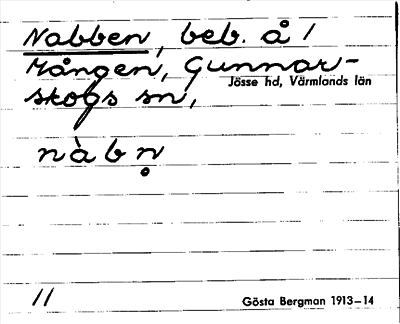 Nabben, beb. å /
Mången, Gunnar-
Jösse hd, Värmlands län
skogs sn,
nàbn̥
//
Gösta Bergman 1913–14